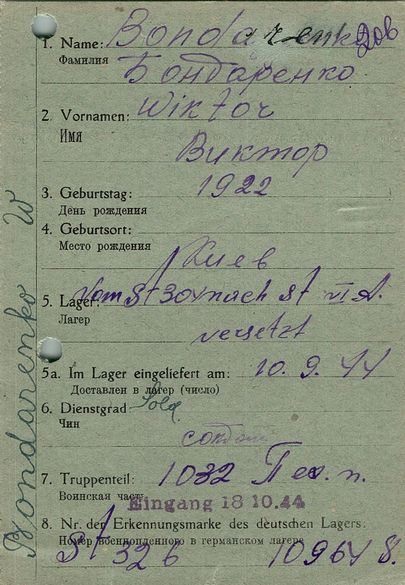 1. Name: Bondarenko
Фамилия Бондаренко
2. Vornamen: Wiktor
Имя
Виктор
3. Geburtstag: 1922
День рождения
4. Geburtsort:
Место рождения
Киев
5. Lager: Vom St nach St VI A.
Лагер
versetzt
5a. Im Lager eingeliefert am: 10. 9. 44
Доставлен в лагер (число)
6. Dienstgrad: Sold.
Чин
7. Truppenteil: 1032 Пех. п.
Воинская часть
Eingang 18 10.44
8. Nr. der Erkennungsmarke des deutschen Lagers:
Номер военнопленного в германском лагере
St 326
Bondarenko W